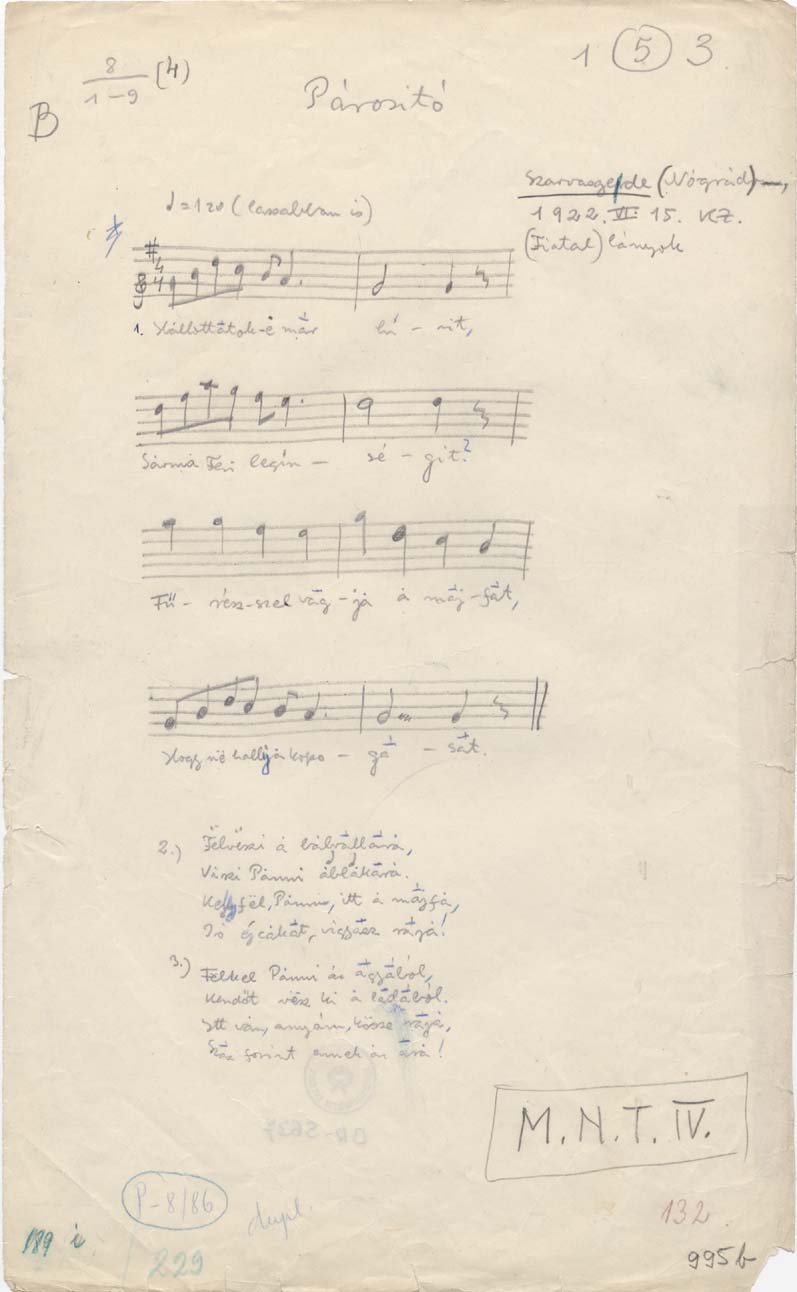 1 (5) 3
8 (4)
1-9
B
Párosító
Szarvasgede (Nógrád),
1922. VI. 15. KZ.
(Fiatal) lányok
♩=120 (lassabban is)
1. Hállottátok-ë már hí - rit,
Sármá Feri legín - sé - git?
Fű - rész-szel vág-já á máj-fát,
Hogy në halljá kopo - gá - sát.
2.) Fëlvëszi á bál vállárá,
Viszi Pánni áblákárá.
fël, Pánni, itt á májfá,
Jó éjcákát, vigyázz rájá!
3.) Fëlkel Pánni áz ágyából,
Këndőt vësz ki á ládából.
Itt ván, anyám, kösse rájá,
Száz forint ennek áz árá!
M.N.T. IV.
P-8/86
dupl.
132
189 i
229
995b